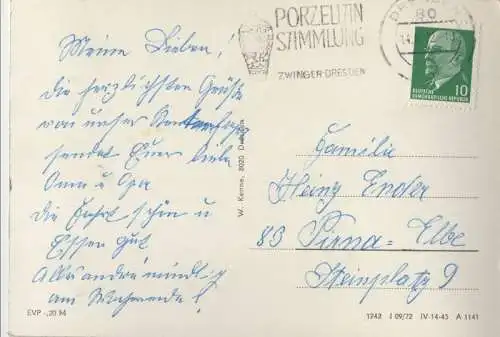 Meine Lieben!
die herzlichsten Grüße
von unser
sendet Euer
Oma u Opa
die Fahrt schön u
Essen gut
Alles andre mündlich
am Wochenende!
PORZELLAN
SAMMLUNG
ZWINGER-DRESDEN
80
10
DEUTSCHE
DEMOKRATISCHE REPUBLIK
W. Kenne, 8020 Dresden
Familie
Heinz Ender
83 Pirna-Elbe
Steinplatz 9
EVP -,20 M
1243 J 09/72 IV-14-45 A 1141